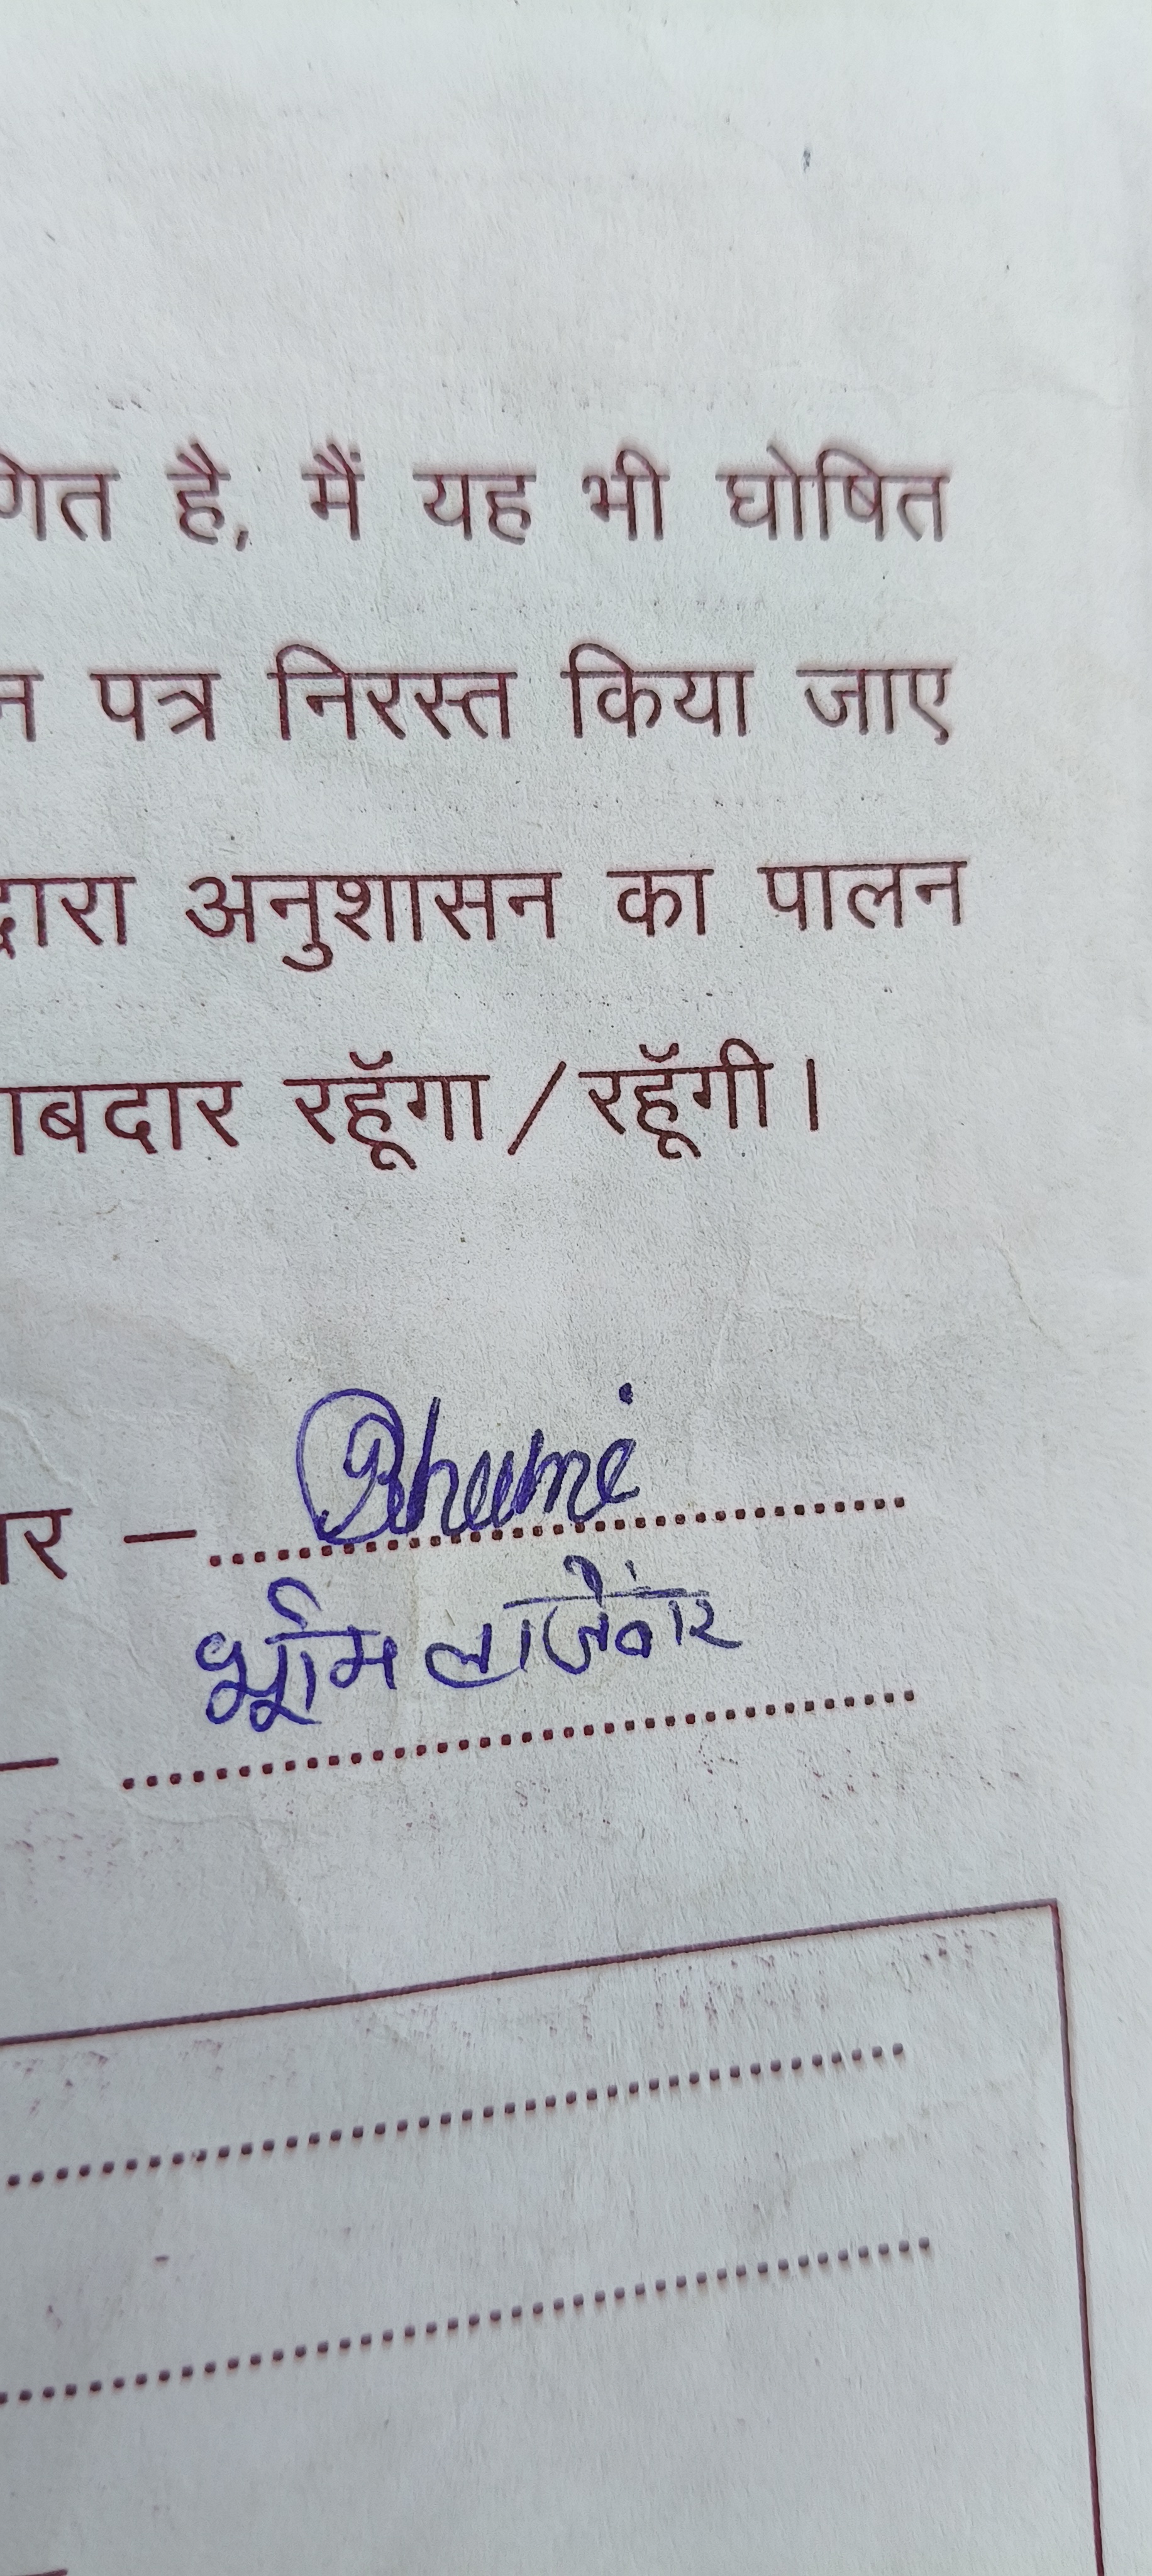 णित है, मैं यह भी घोषित
न पत्र निरस्त किया जाए
द्वारा अनुशासन का पालन
ाबदार रहूँगा/रहूँगी।
Bhumi
भूमि